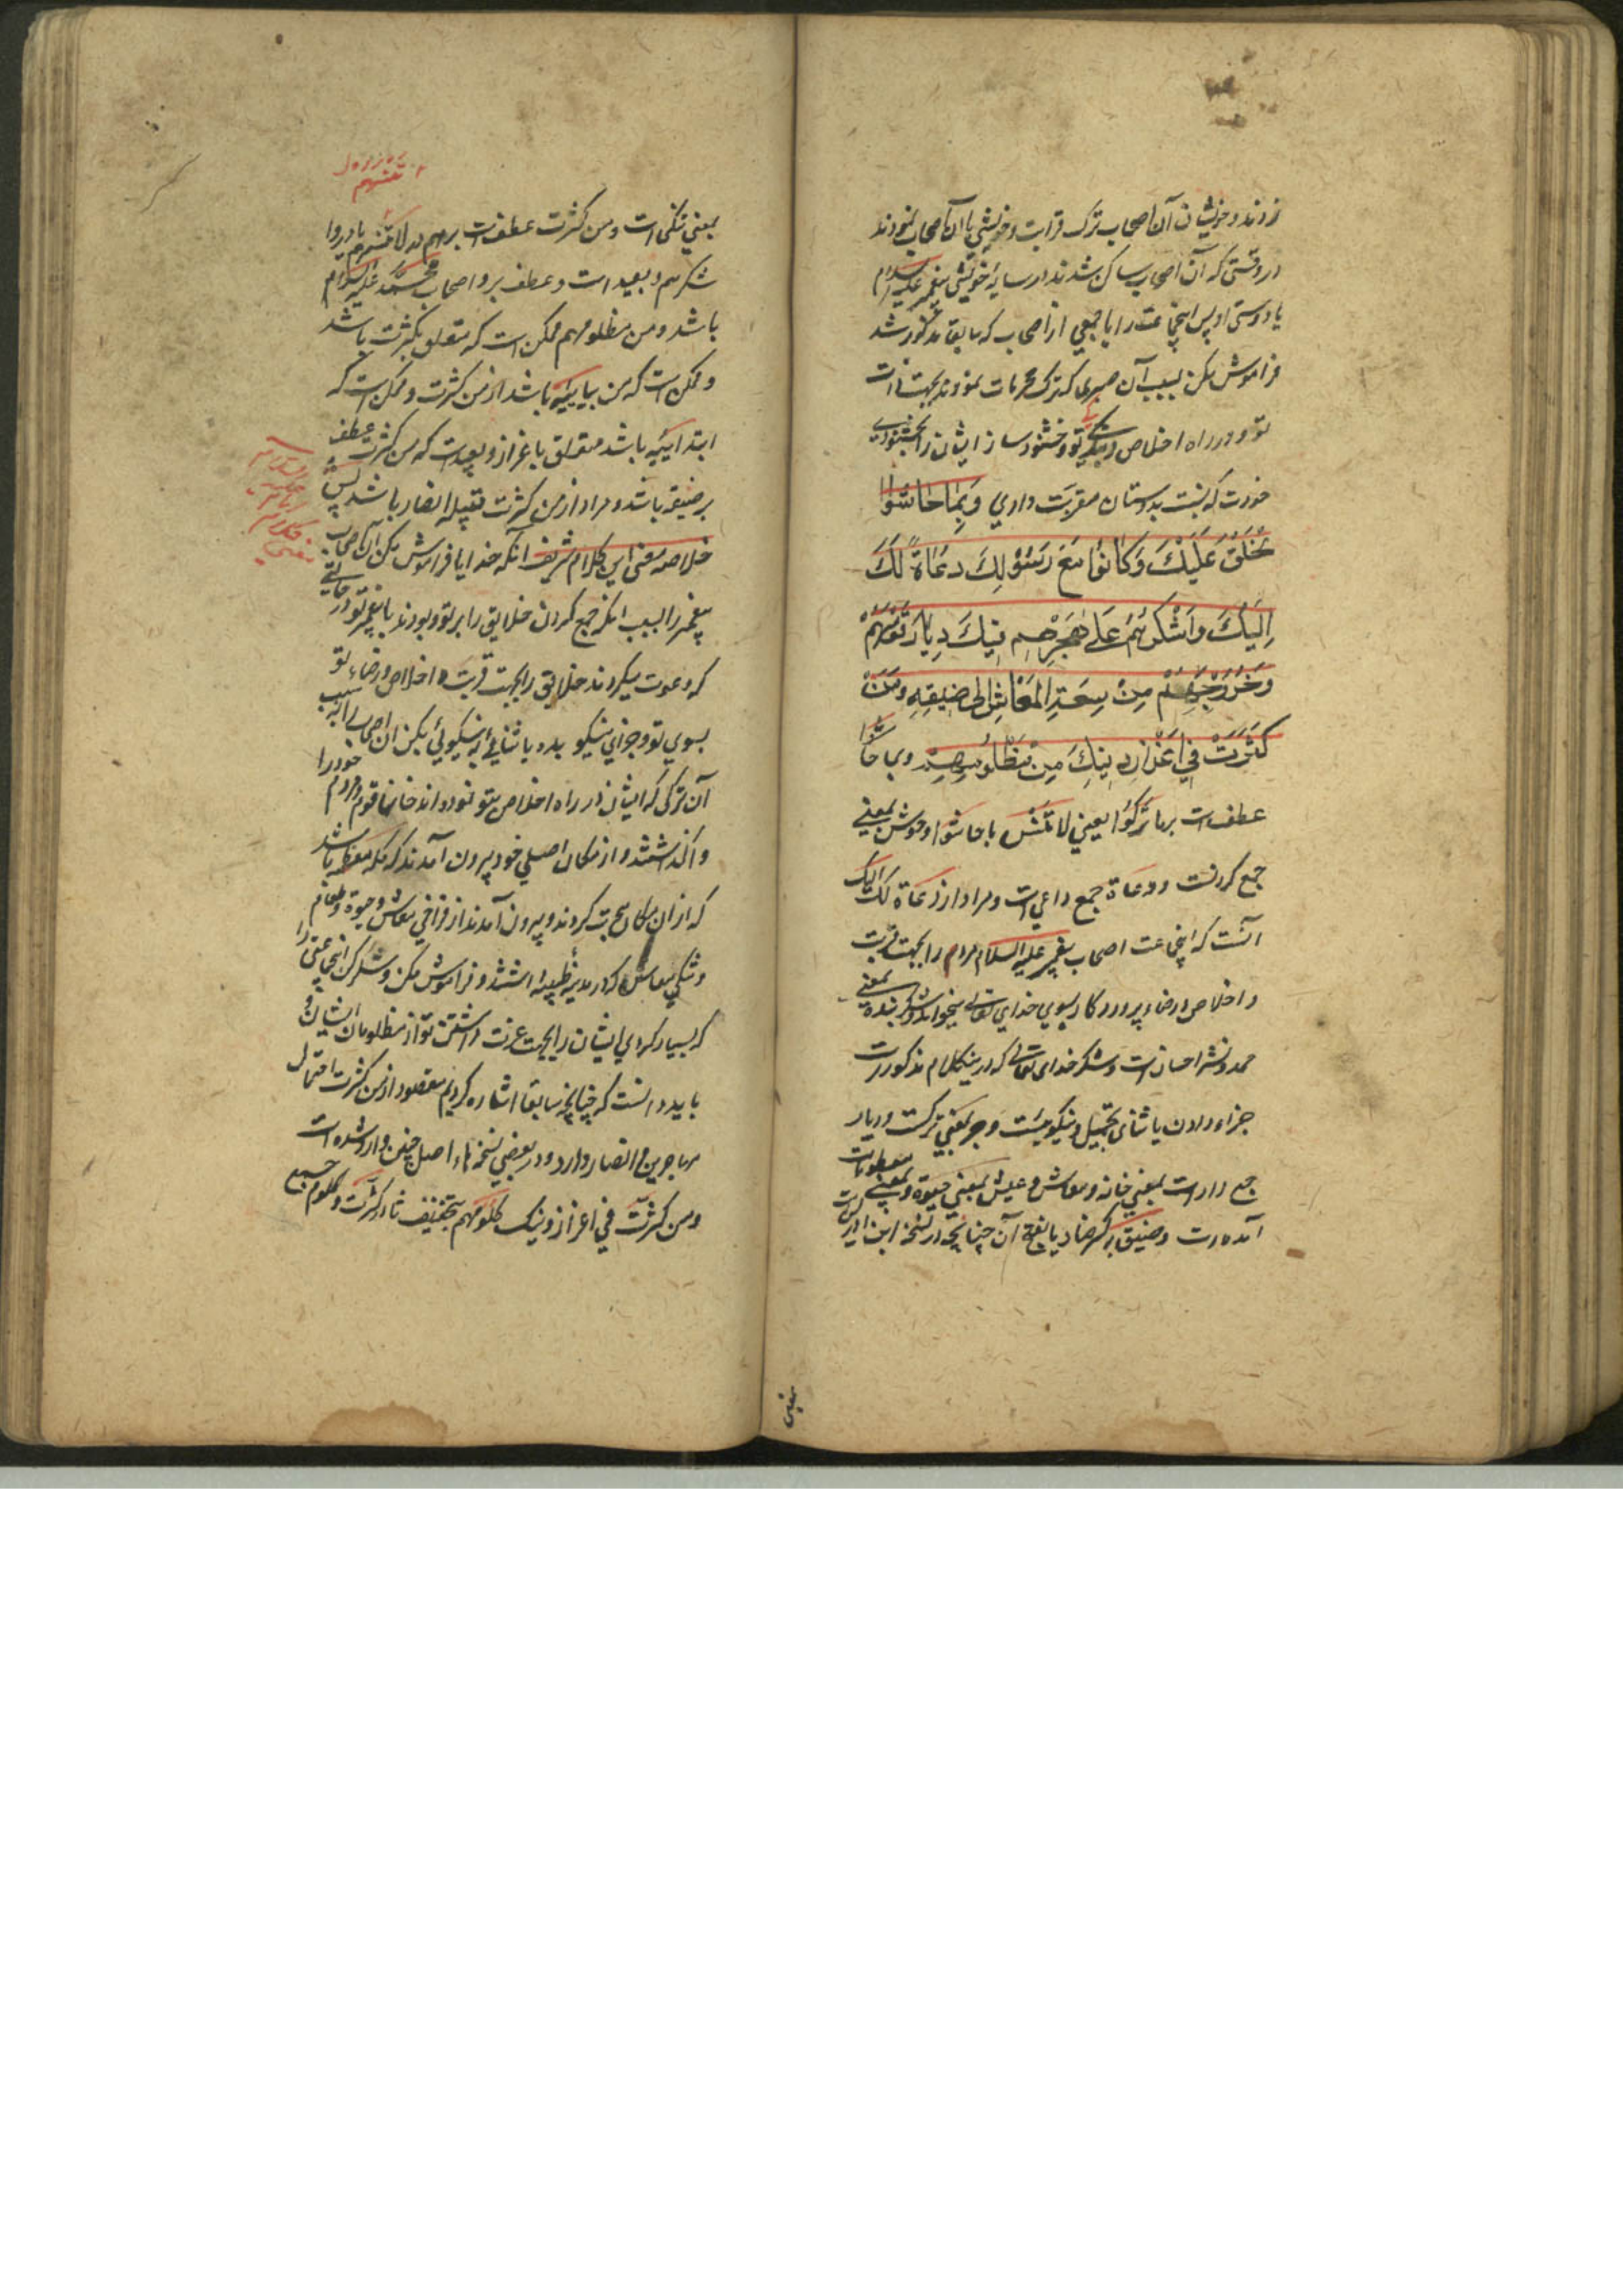 زدند و خویشان آن اصحاب ترک قرابت و خویشی با آن اصحاب نمودند
در وقتی که آن اصحاب ساکن شدند در سایه خویشی پیغمبر علیه السلام
یا دوستی او پس اینجماعت را یا جمعی از اصحاب که سابقا مذکور شد
فراموش مکن بسبب آن که ترک نمودند بجهت ذات
تو و در راه اخلاص تو و خشنود ساز ایشان را بخشنودی
خودت که نسبت بدوستان مقربت داری وَبِمَا حَاشُوا
الْخَلْقَ عَلَيْكَ وَكَانُوا مَعَ رَسُولِكَ دُعَاةً لَكَ
اِلَيْكَ وَاشْكُرْهُمْ عَلَى هَجْرِهِمْ فِيكَ دِيَارَ قَوْمِهِمْ
وَخُرُوجِهِمْ مِنْ سَعَةِ الْمَعَاشِ اِلى ضِيقِهِ وَمَنْ
كَثَّرْتَ فِي اِعْزَازِ دِينِكَ مِنْ مَظْلُومِهِمْ وبما حاشوا
عطفست بر ما تَرَكُوا یعنی لا تَنْسَ بما حاشوا و حوش بمعنی
جمع کردنست و دعاة جمع داعی است و مراد از دُعَاةً لَكَ اِلَيْكَ
آنست که اینجماعت اصحاب پیغمبر علیه السلام مردم را بجهت قربت
و اخلاص و رضاء پروردگار بسوی خدای تعالی میخواندند و شکر بنده بمعنی
حمد و نشر احسانست و شکر خدای تعالی که درینکلام مذکورست
جزا دادن یا ثنای بجمیل و نیکوییست و هجر بمعنی ترکست و دیار
جمع دار است بمعنی خانه و معاش و عیش بمعنی حیوة و بمعنی مطعومات
آمده است و ضیق بکسر ضاد یا بفتح آن چنانچه در نسخه ابن ادریس است
بمعنی تنگی است و من کثرت عطفست بر هم در لا تنسهم یا در و
شکرهم و بعید است و عطف بر و اصحاب محمد علیه السلام
باشد و من مظلومهم ممکن است که متعلق بکثرت باشد
و ممکن است که من بیانیه باشد از من کثرت و ممکن است که
ابتدائیه باشد متعلق باعزاز و بعید است که من کثرت عطف
بر ضیقه باشد و مراد از من کثرت قبیله انصار باشد پس
خلاصه معنی این کلام شریف آنکه خدایا فراموش مکن آن اصحاب
پیغمبر را بسبب آنکه جمع کردن خلایق را بر تو و بودند با پیغمبر تو در حالتی
که دعوت میکردند خلایق را بجهت قربت و اخلاص و رضاء تو
بسوی تو و جزای نیکو بده یا ثنائی به نیکوئی بکن آن اصحاب را بسبب
آن ترکی که ایشان در راه اخلاص بتو نموده اند خانها قوم و مردم خود را
واگذاشتند و از مکان اصلی خود بیرون آمدند که مکه معظمه باشد
که از آن مکان هجرت کردند و بیرون آمدند از فراخی معاش و حیوة و طعام
و تنگی معاش که در مدینه طیبه داشتند و فراموش مکن و شکر کن آنجماعتی را
که بسیار کردی ایشان را بجهت عزت داشتن تو از مظلومان ایشان و
باید دانست که چنانچه سابقا اشاره کردیم مقصود از من کثرت احتمال
مهاجرین و انصار دارد و در بعضی نسخه‌های اصل چنین وارد شده است
ومن كثرت في اعزاز دينك كلومهم بتخفیف ثاء کثرت و کلوم جمع